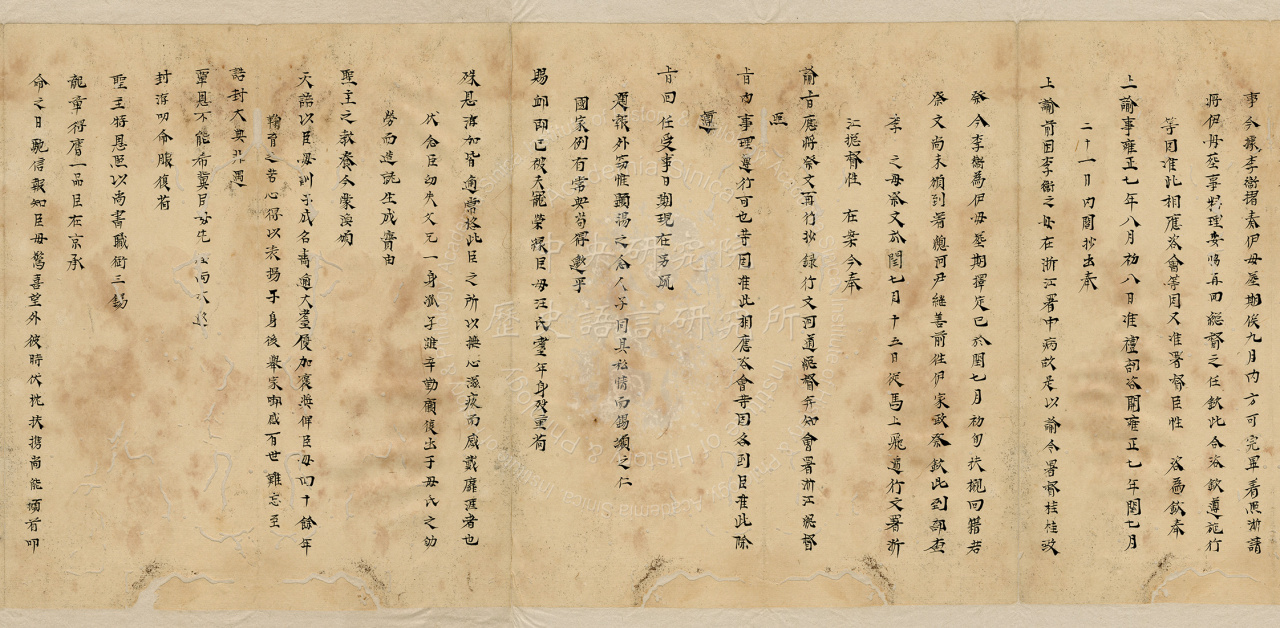 事今據李衛摺奏伊母塟期俟九月內方可完畢看照所請
將伊母塟事料理妥協再回總督之任欽此合咨欽遵施行
等因准此相應咨會等因又准署督臣性 咨為欽奉
上諭事雍正七年八月初八日准禮部咨開雍正七年閏七月
二十一日內閣抄出奉
上諭前因李衛之母在浙江署中病故是以諭令署督性桂致
祭今李衛為伊母塟期擇定已於閏七月初旬扶櫬回籍若
祭文尚未頒到著總河尹繼善前往伊家致祭欽此到部查
李 之母祭文於閏七月十三日從馬上飛遞行文署浙
江總督性 在案今奉
諭旨應將祭文再行抄錄行文河道總督并知會署浙江總督
照
旨內事理遵行可也等因准此相應咨會等因各到臣准此除
遵
旨回任受事日期現在另疏
題報外窃惟顯揚之念人子同具私情而錫類之仁
國家例有常典苟得邀乎
賜卹即已被夫寵榮猥臣母汪氏耋年身故重荷
殊恩洊加皆逾常格此臣之所以撫心滋疚而感戴靡涯者也
伏念臣幼失父兄一身孤子雖辛勤顧復出于母氏之劬
勞而造就生成實由
聖主之教養今蒙渙頒
天語以臣母訓子成名壽逾大耋優加褒奬俾臣母四十餘年
鞠育之苦心得以表揚于身後舉家啣感百世難忘至
誥封大典非遇
覃恩不能希冀臣母先 而大
封洊叨命服復荷
聖主特恩照以尚書職銜三錫
龍章得膺一品臣在京承
命之日馳信報知臣母驚喜望外彼時伏枕扶携尚能頓首叩